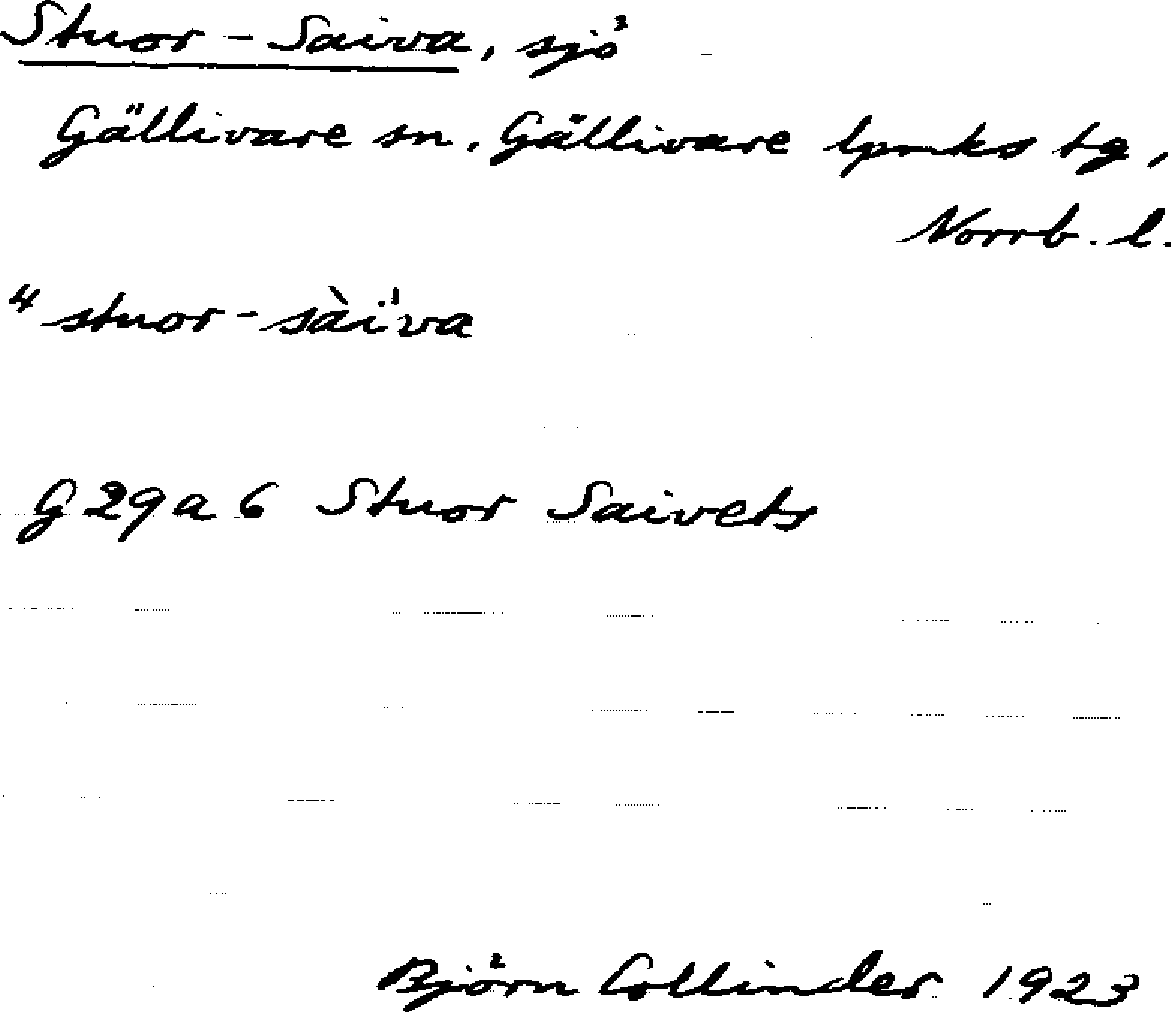 Stuor-Saiva, sjö
Gällivare sn. Gällivare lpmks tg,
Norrb. l.
4 stuor-sài'va
G 29 a 6 Stuor Saivets
Björn Collinder 1923